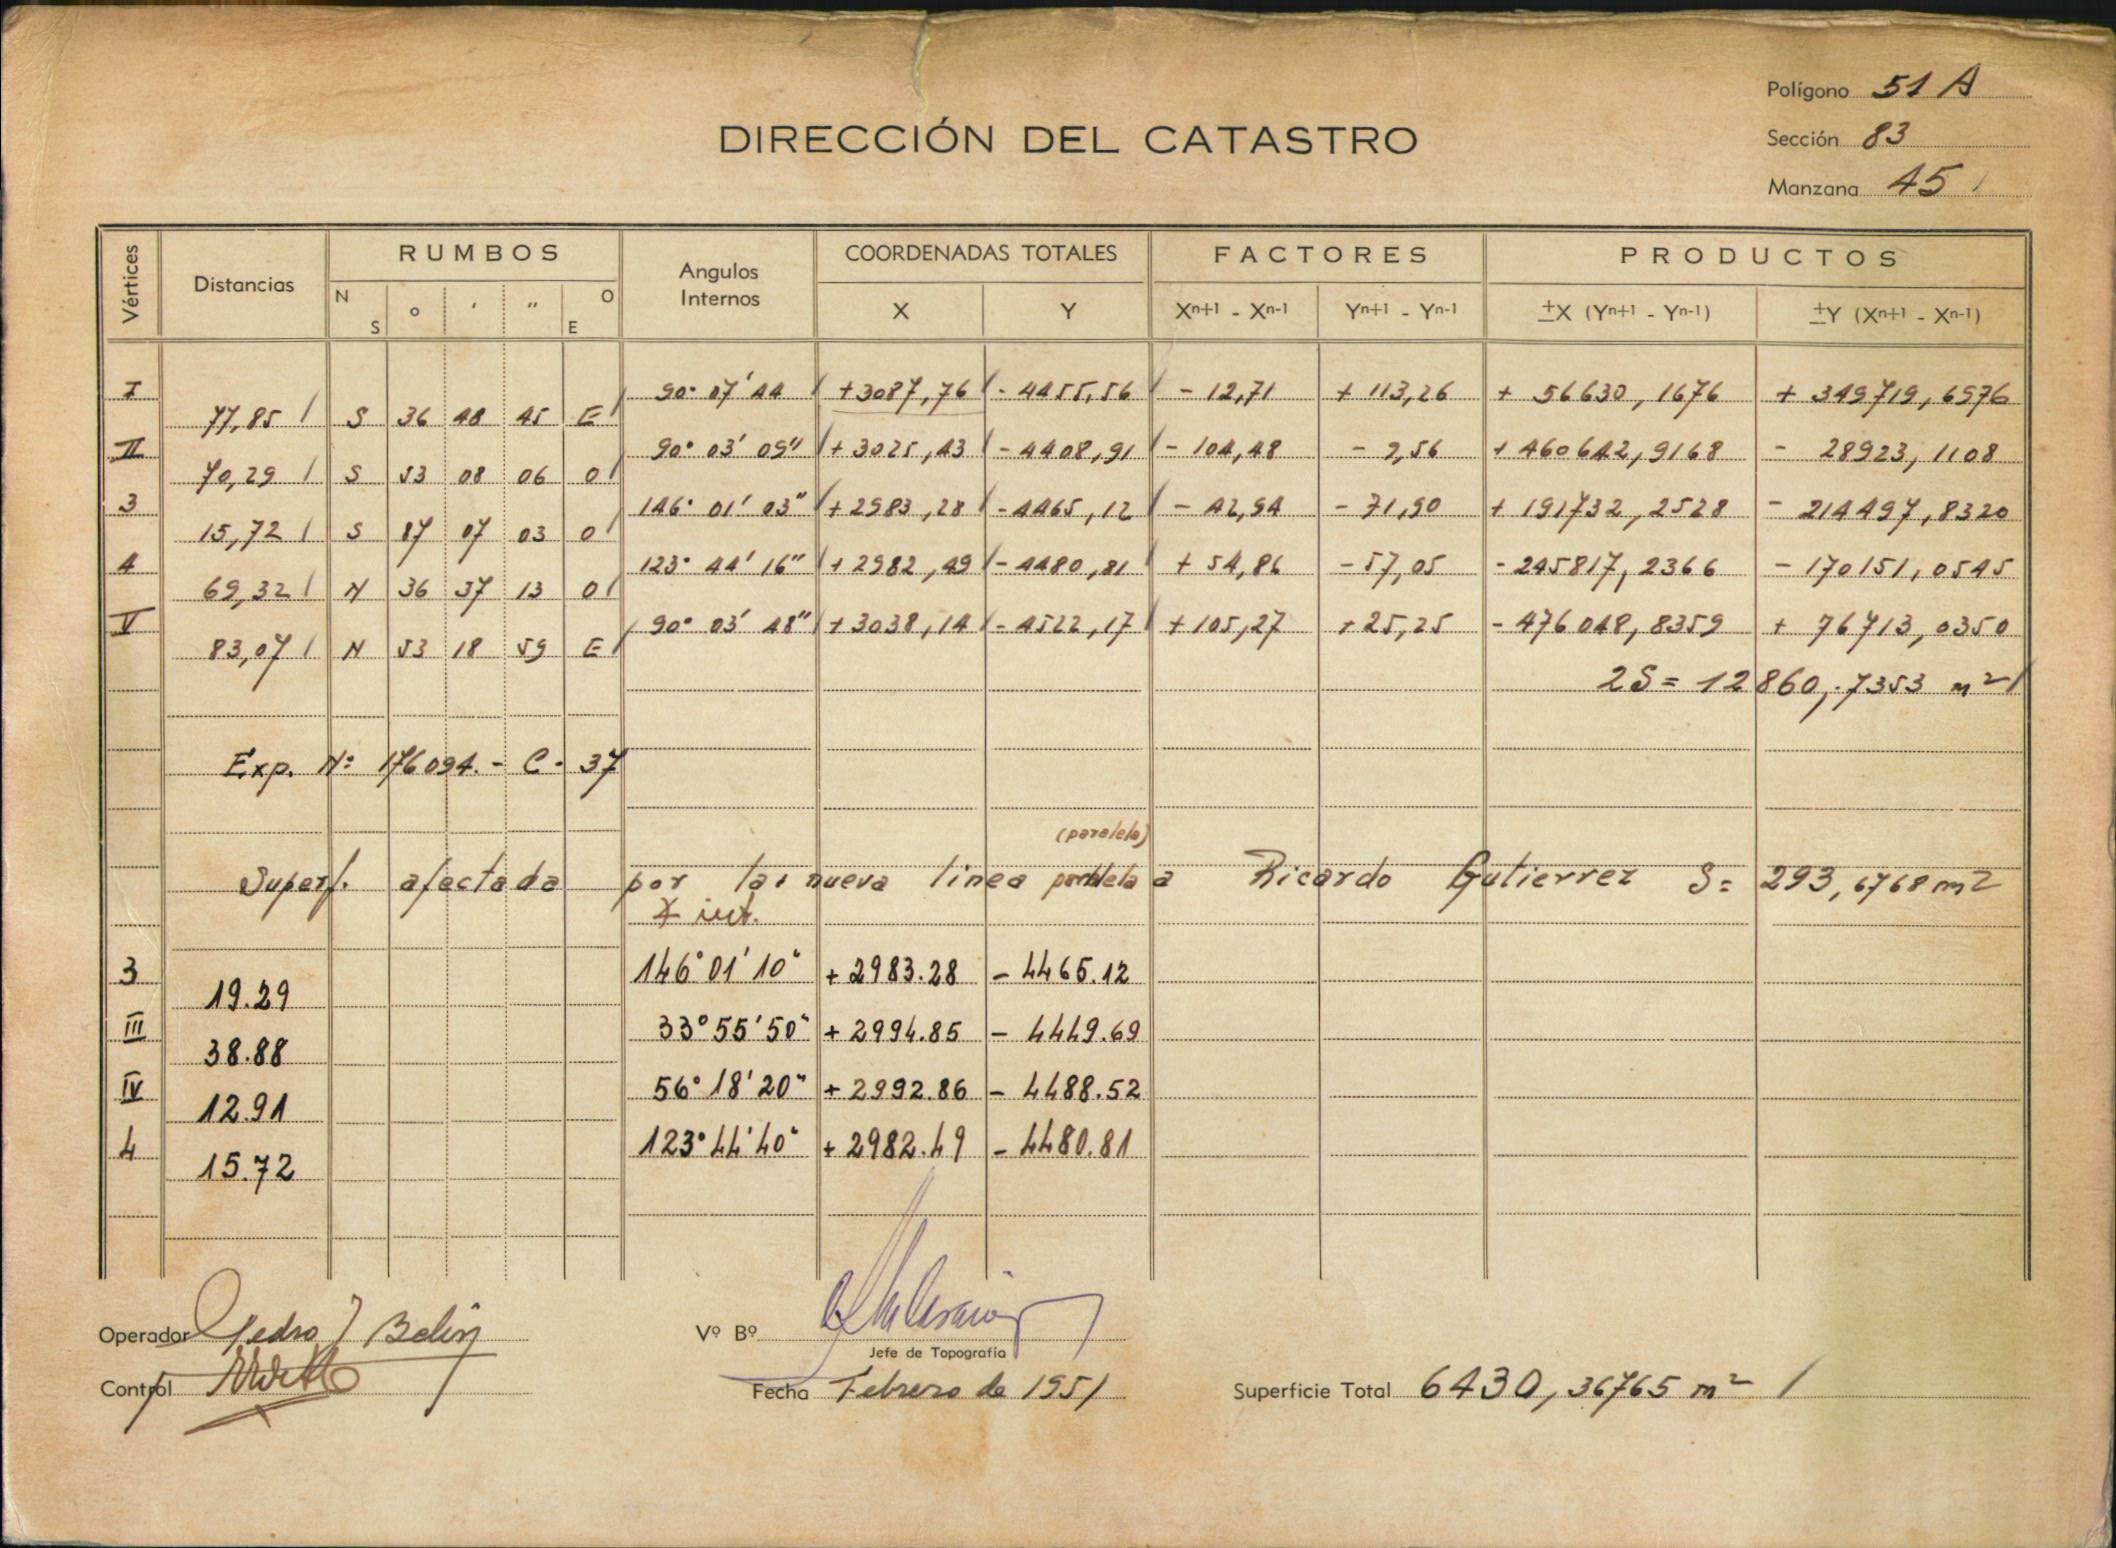 Polígono 51 A
DIRECCIÓN DEL CATASTRO
Sección 83
Manzana 45
Vértices Distancias RUMBOS Angulos Internos COORDENADAS TOTALES FACTORES PRODUCTOS
N S o ' " O E X Y Xn+1 - Xn-1 Yn+1 - Yn-1 ±X (Yn+1 - Yn-1) ±Y (Xn+1 - Xn-1)
I 90° 07' 44 +3087,76 - 4455,56 - 12,71 + 113,26 + 56630,1676 + 349719,6976
77,85 S 36 48 45 E
II 90° 03' 09" + 3025,43 - 4408,91 - 104,48 - 9,56 + 460642,9168 - 28923,1108
70,29 S 53 08 06 O
3 146° 01' 03" + 2983,28 - 4465,12 - 42,94 - 71,90 + 191732,2528 - 214497,8320
15,72 S 87 07 03 O
4 123° 44' 16" + 2982,49 - 4480,81 + 54,86 - 57,05 - 245817,2366 - 170151,0545
69,32 N 36 37 13 O
V 90° 03' 48" + 3038,14 - 4522,17 + 105,27 + 25,25 - 476048,8359 + 76713,0350
83,07 N 53 18 59 E
2S = 12860,7353 m2
Exp. Nº 176094.- C - 37
(paralela)
Superf. afectada por la nueva linea paralela a Ricardo Gutierrez S= 293,6768 m2
∡ int.
3 146° 01' 10" + 2983.28 - 4465.12
19.29
III 33° 55' 50" + 2994.85 - 4449.69
38.88
IV 56° 18' 20" + 2992.86 - 4488.52
12.91
4 123° 44' 40" + 2982.49 - 4480.81
15.72
Operador Pedro J Belin Vº Bº
Jefe de Topografía
Control Fecha Febrero de 1951 Superficie Total 6430,36765 m2